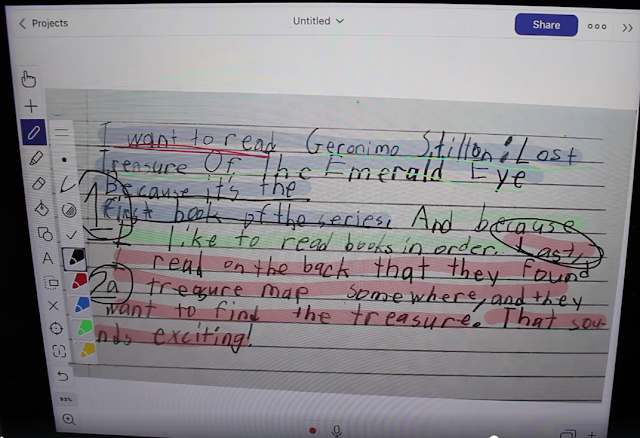 Projects
Untitled
Share
I want to read Geronimo Stillon: Lost
Treasure Of The Emerald Eye
Because it's the
first book of the series. And because
I like to read books in order. Last,
I read on the back that they found
a treasure map somewhere, and they
want to find the treasure. That sou-
nds exciting!
1
2
A
92%